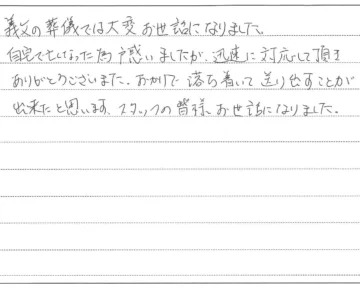 義父の葬儀では大変お世話になりました。
自宅で亡くなった為戸惑いましたが、迅速に対応して頂き
ありがとうございました。おかげで落ち着いて送り出すことが
出来たと思います。スタッフの皆様、お世話になりました。